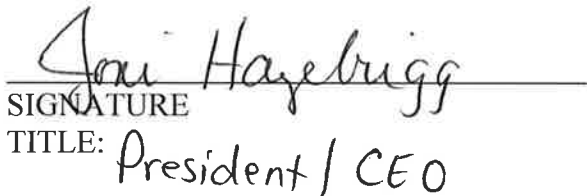 Joni Hazebrigg
SIGNATURE
TITLE: President / CEO